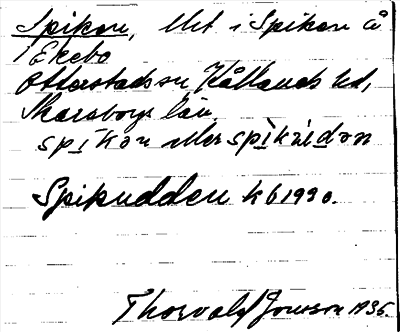 Spikon, Ut i Spikon å
Ekebo
Otterstads sn Kållands hd,
Skaraborgs län
spikən eller spikɯdən
Spikudden kb 1990.
Thorvald Jonsson 1935.